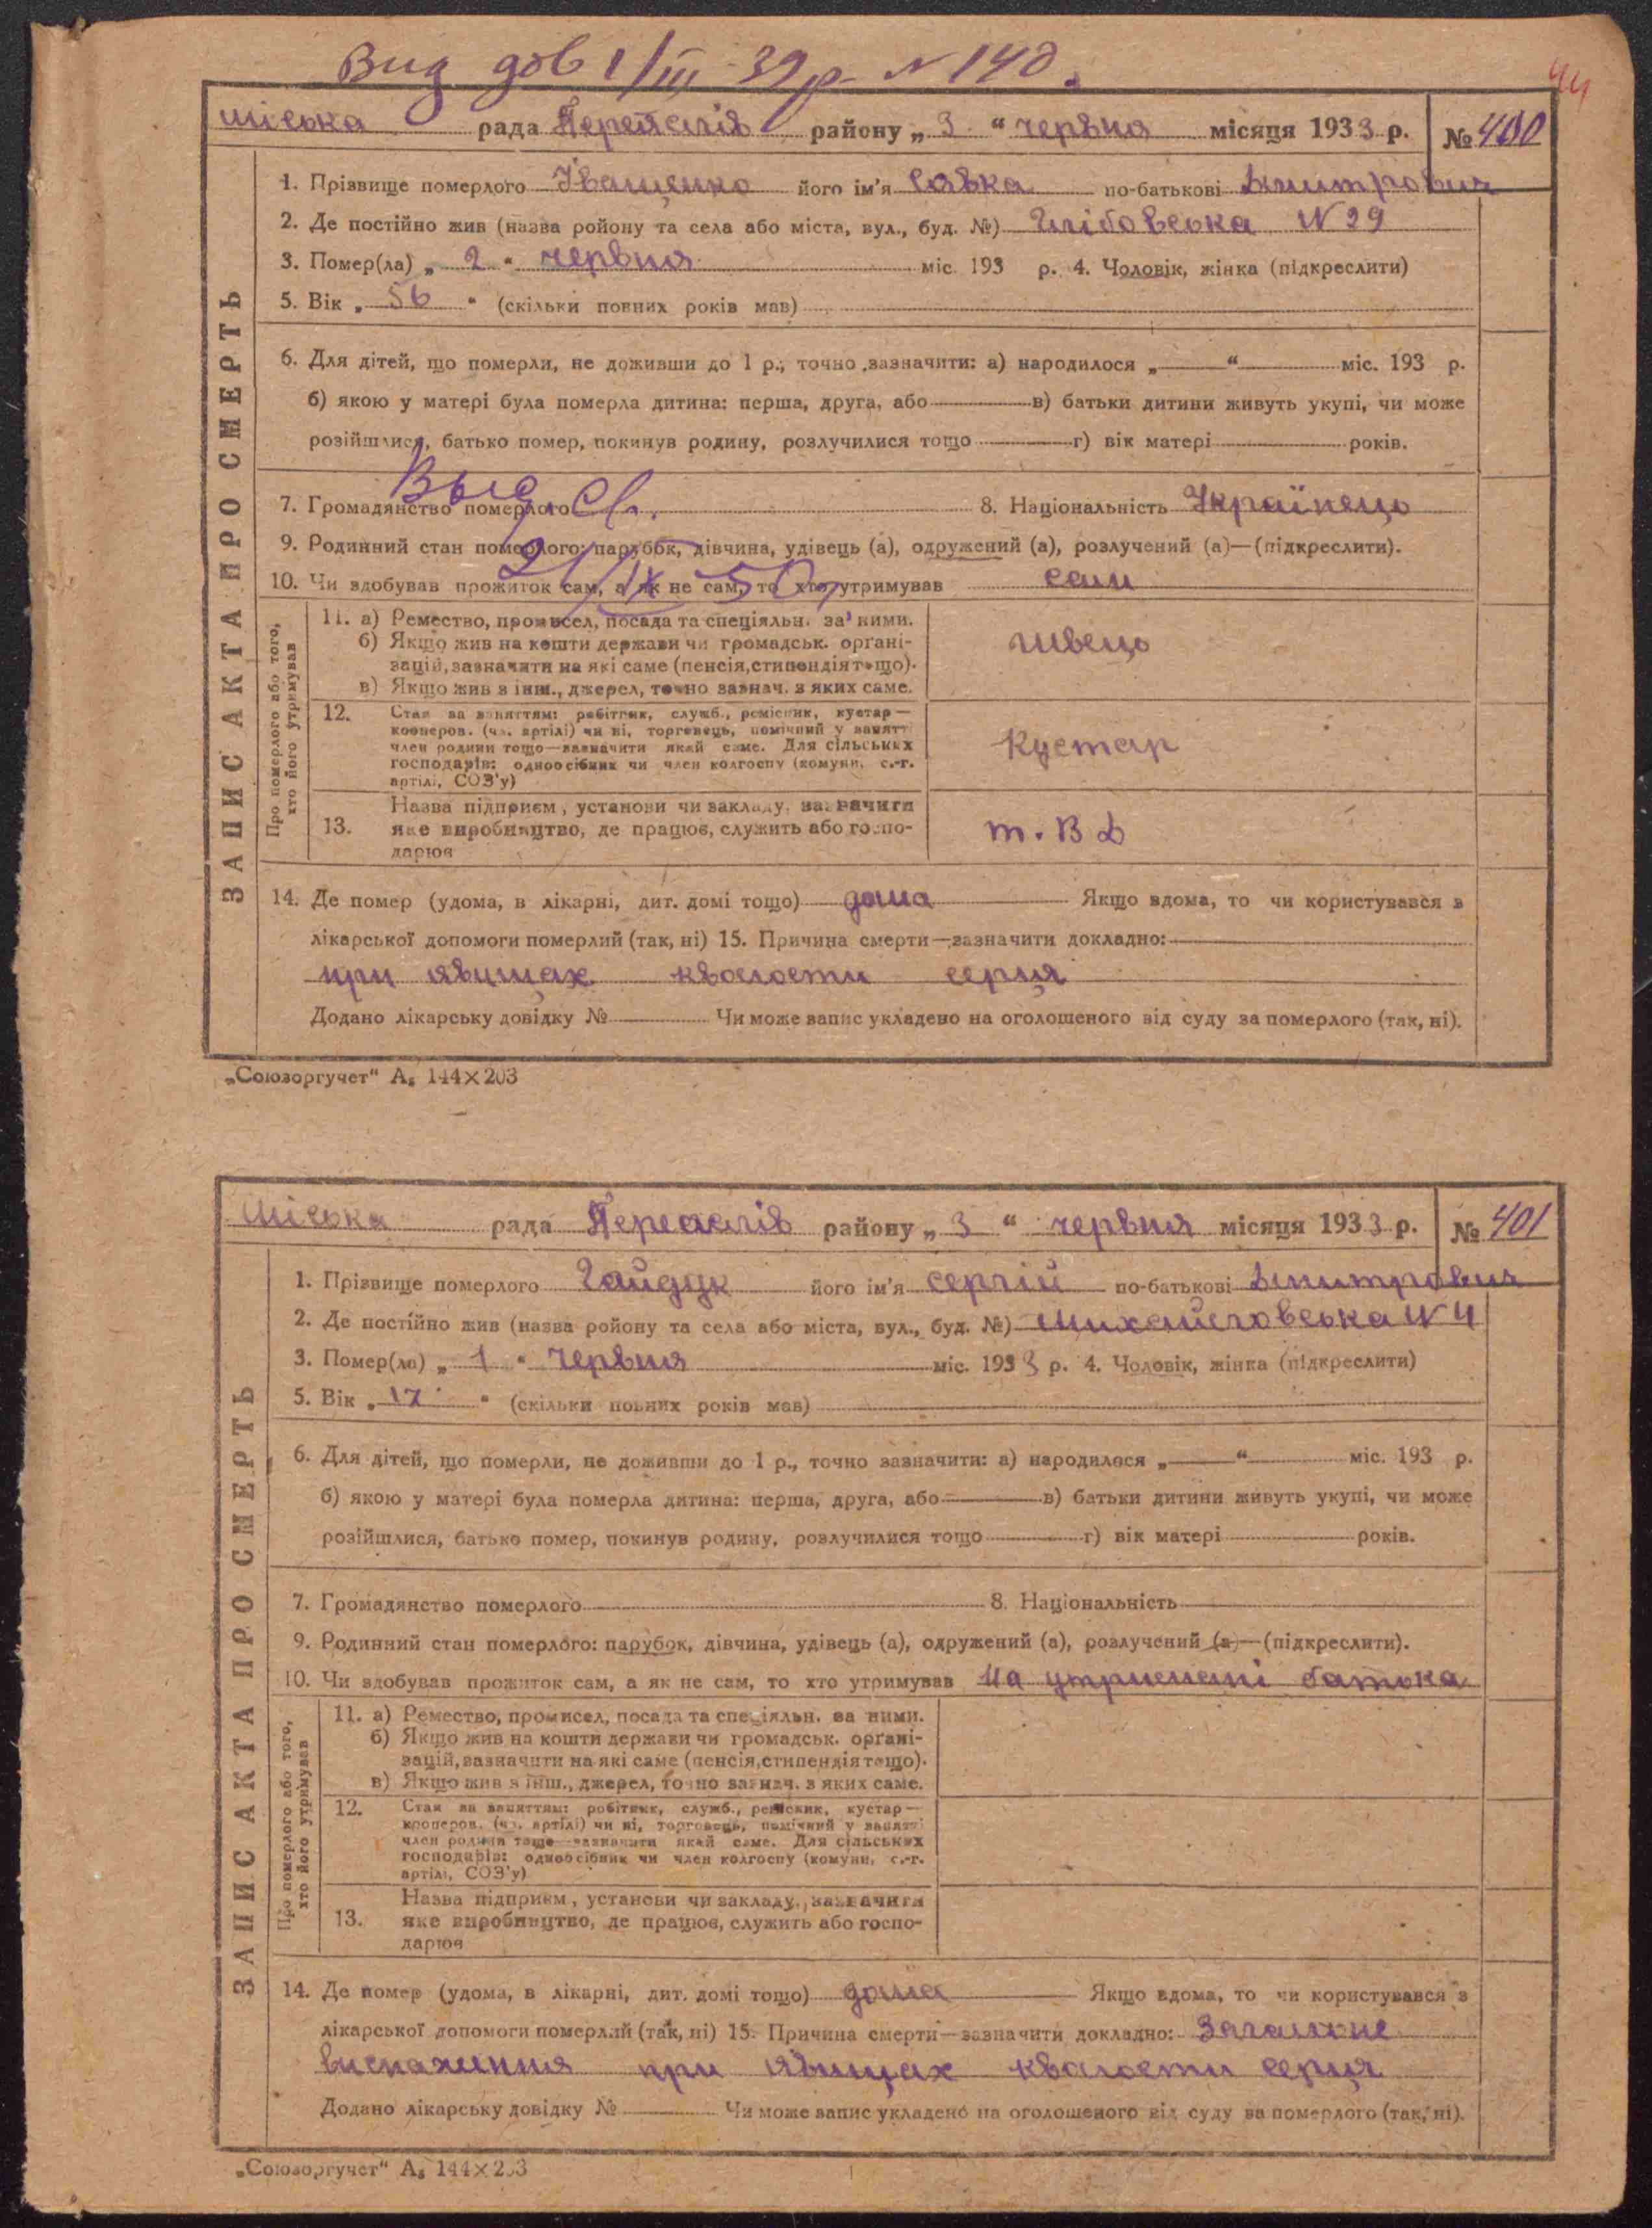 Вид. дов 1/III 39 р. № 140.
44
міська рада Переяслів району „ 3 “ червня місяця 1933 р. № 400
ЗАПИС АКТА ПРО СМЕРТЬ
1. Прізвище померлого Іващенко його ім'я Савка по-батькові Дмитрович
2. Де постійно жив (назва ройону та села або міста, вул., буд. №) Глібовська № 29
3. Помер(ла) „ 2 “ червня міс. 193 р. 4. Чоловік, жінка (підкреслити)
5. Вік „ 56 “ (скільки повних років мав)
6. Для дітей, що померли, не доживши до 1 р., точно зазначити: а) народилося „ “ міс. 193 р.
б) якою у матері була померла дитина: перша, друга, або в) батьки дитини живуть укупі, чи може
розійшлися, батько помер, покинув родину, розлучилися тощо г) вік матері років.
Выд. Св.
7. Громадянство померлого 8. Національність Українець
9. Родинний стан померлого: парубок, дівчина, удівець (а), одружений (а), розлучений (а)—(підкреслити).
21/IX 50
10. Чи здобував прожиток сам, а як не сам, то хто утримував сам
Про померлого або того, хто його утримував
11. а) Ремество, промисел, посада та спеціяльн. за ними.
б) Якщо жив на кошти держави чи громадськ. органі-
зацій, зазначити на які саме (пенсія, стипендія тощо).
в) Якщо жив з інш., джерел, точно зазнач. з яких саме.
швець
12. Стан за заняттям: робітник, служб., ремісник, кустар—
кооперов. (чл. артілі) чи ні, торговець, помічний у занятті
член родини тощо—зазначити який саме. Для сільських
господарів: одноосібник чи член колгоспу (комуни, с.-г.
артілі, СОЗ'у)
Кустар
13. Назва підприєм, установи чи закладу, зазначити
яке виробництво, де працює, служить або госпо-
дарює
т. В Д
14. Де помер (удома, в лікарні, дит. домі тощо) дома Якщо вдома, то чи користувався з
лікарської допомоги померлий (так, ні) 15. Причина смерти—зазначити докладно:
при явищах кволости серця
Додано лікарську довідку № Чи може запис укладено на оголошеного від суду за померлого (так, ні).
„Союзоргучет“ А₅ 144×203
Міська рада Переяслів району „ 3 “ червня місяця 1933 р. № 401
ЗАПИС АКТА ПРО СМЕРТЬ
1. Прізвище померлого Гайдук його ім'я Сергій по-батькові Дмитрович
2. Де постійно жив (назва ройону та села або міста, вул., буд. №) Михайловська № 4
3. Помер(ла) „ 1 “ Червня міс. 1933 р. 4. Чоловік, жінка (підкреслити)
5. Вік „ 17 “ (скільки повних років мав)
6. Для дітей, що померли, не доживши до 1 р., точно зазначити: а) народилося „ “ міс. 193 р.
б) якою у матері була померла дитина: перша, друга, або в) батьки дитини живуть укупі, чи може
розійшлися, батько помер, покинув родину, розлучилися тощо г) вік матері років.
7. Громадянство померлого 8. Національність
9. Родинний стан померлого: парубок, дівчина, удівець (а), одружений (а), розлучений (а)—(підкреслити).
10. Чи здобував прожиток сам, а як не сам, то хто утримував На утриманні батька
Про померлого або того, хто його утримував
11. а) Ремество, промисел, посада та спеціяльн. за ними.
б) Якщо жив на кошти держави чи громадськ. органі-
зацій, зазначити на які саме (пенсія, стипендія тощо).
в) Якщо жив з інш., джерел, точно зазнач. з яких саме.
12. Стан за заняттям: робітник, служб., ремісник, кустар—
кооперов. (чл. артілі) чи ні, торговець, помічний у занятті
член родини тощо—зазначити який саме. Для сільських
господарів: одноосібник чи член колгоспу (комуни, с.-г.
артілі, СОЗ'у)
13. Назва підприєм, установи чи закладу, зазначити
яке виробництво, де працює, служить або госпо-
дарює
14. Де помер (удома, в лікарні, дит. домі тощо) дома Якщо вдома, то чи користувався з
лікарської допомоги померлий (так, ні) 15. Причина смерти—зазначити докладно: Загальне
виснаження при явищах кволости серця
Додано лікарську довідку № Чи може запис укладено на оголошеного від суду за померлого (так, ні).
„Союзоргучет“ А₅ 144×203